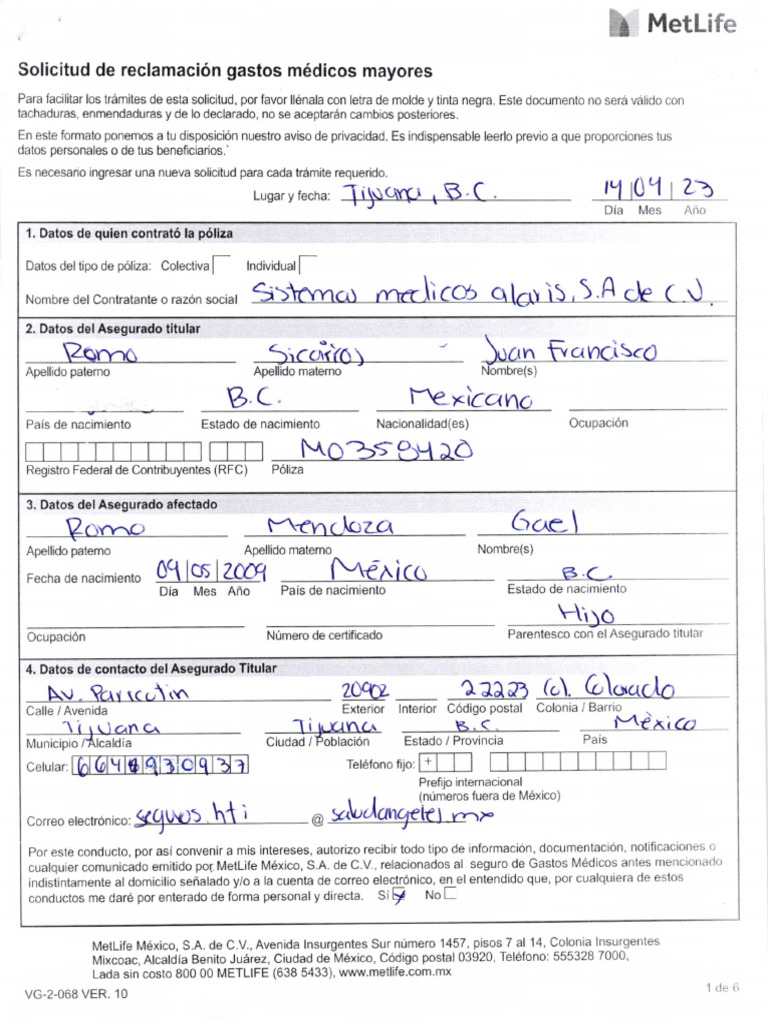 MetLife
Solicitud de reclamación gastos médicos mayores
Para facilitar los trámites de esta solicitud, por favor llénala con letra de molde y tinta negra. Este documento no será válido con
tachaduras, enmendaduras y de lo declarado, no se aceptarán cambios posteriores.
En este formato ponemos a tu disposición nuestro aviso de privacidad. Es indispensable leerlo previo a que proporciones tus
datos personales o de tus beneficiarios.*
Es necesario ingresar una nueva solicitud para cada trámite requerido.
Lugar y fecha: Tijuana, B.C. 14 04 23
Día Mes Año
1. Datos de quien contrató la póliza
Datos del tipo de póliza: Colectiva Individual
Nombre del Contratante o razón social Sistemas medicos alaris, S.A de C.V.
2. Datos del Asegurado titular
Romo Sicairos Juan Francisco
Apellido paterno Apellido materno Nombre(s)
B.C. Mexicano
País de nacimiento Estado de nacimiento Nacionalidad(es) Ocupación
M0359420
Registro Federal de Contribuyentes (RFC) Póliza
3. Datos del Asegurado afectado
Romo Mendoza Gael
Apellido paterno Apellido materno Nombre(s)
Fecha de nacimiento 09 05 2009 México B.C.
Día Mes Año País de nacimiento Estado de nacimiento
Hijo
Ocupación Número de certificado Parentesco con el Asegurado titular
4. Datos de contacto del Asegurado Titular
Av. Paricutin 20902 22223 Col. Colorado
Calle / Avenida Exterior Interior Código postal Colonia / Barrio
Tijuana Tijuana B.C. México
Municipio / Alcaldía Ciudad / Población Estado / Provincia País
Celular: 6648930937 Teléfono fijo: +
Prefijo internacional
(números fuera de México)
Correo electrónico: seguros.hti @ saludangeles.mx
Por este conducto, por así convenir a mis intereses, autorizo recibir todo tipo de información, documentación, notificaciones o
cualquier comunicado emitido por MetLife México, S.A. de C.V., relacionados al seguro de Gastos Médicos antes mencionado
indistintamente al domicilio señalado y/o a la cuenta de correo electrónico, en el entendido que, por cualquiera de estos
conductos me daré por enterado de forma personal y directa. Sí No
MetLife México, S.A. de C.V., Avenida Insurgentes Sur número 1457, pisos 7 al 14, Colonia Insurgentes
Mixcoac, Alcaldía Benito Juárez, Ciudad de México, Código postal 03920, Teléfono: 555328 7000,
Lada sin costo 800 00 METLIFE (638 5433), www.metlife.com.mx
VG-2-068 VER. 10
1 de 6